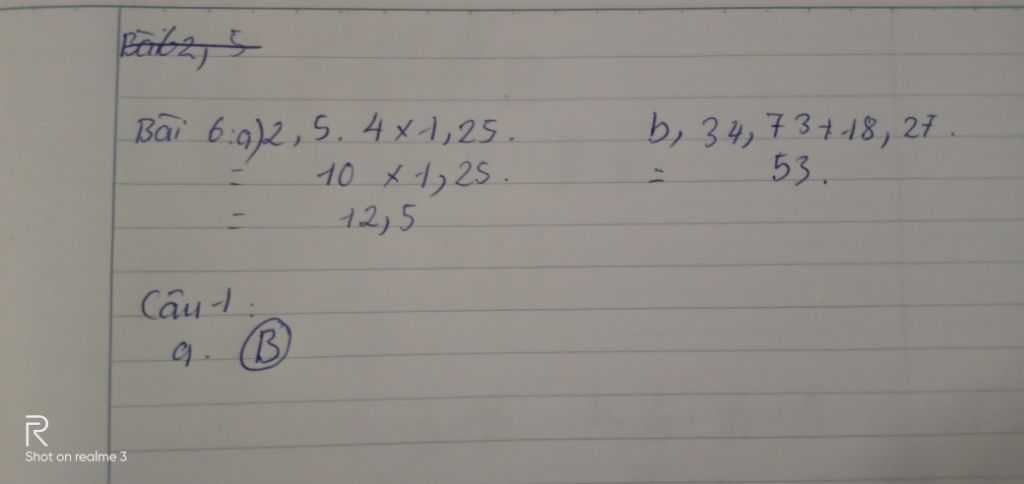 Bài 2, 5
Bài 6: a) 2, 5. 4 × 1, 25. b, 34, 73 + 18, 27.
= 10 × 1, 25. = 53.
= 12, 5
Câu 1:
a. B
R
Shot on realme 3